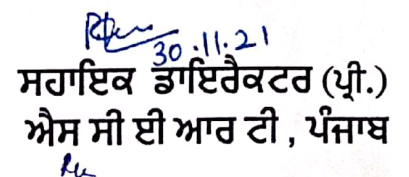 30.11.21
ਸਹਾਇਕ ਡਾਇਰੈਕਟਰ (ਪ੍ਰੀ.)
ਐਸ ਸੀ ਈ ਆਰ ਟੀ , ਪੰਜਾਬ